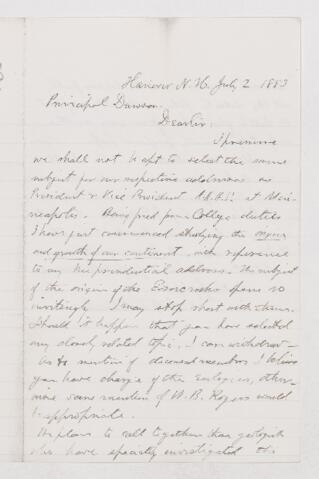 Hanover N.H. July 2 1883
Principal Dawson.
Dear Sir,
I presume
we shall not be apt to select the same
subject for our respective addresses as
President & Vice President A.A.A.S. at Min-
neapolis. Being freed from College duties
I have just commenced studying the origin
and growth of our continent, with reference
to my Vice presidential address. The subject
of the origin of the Eozoic rocks opens so
invitingly I may stop short with them.
Should it happen that you have selected
any closely related topic, I can withdraw.
As to mention of deceased members I believe
you have charge of the eulogies, other-
wise some mention of W. B. Rogers would
be appropriate.
We plan to call together those geologists
who have specially investigated the